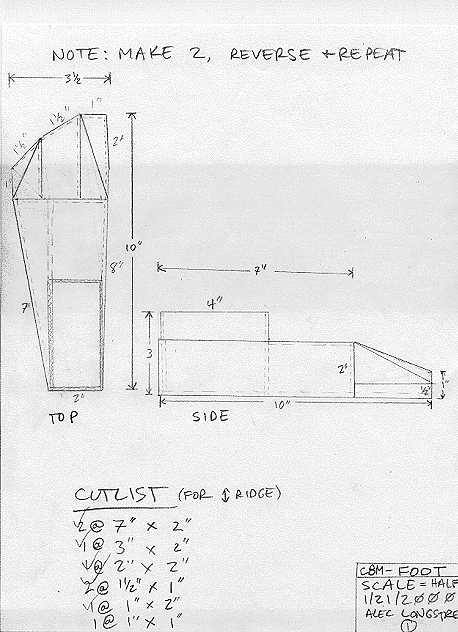 NOTE: MAKE 2, REVERSE + REPEAT
3½
1"
1½"
1½"
1"
2"
10"
8"
7"
2"
TOP
7"
4"
3
2"
½"
1"
10"
SIDE
CUTLIST (FOR ↕ RIDGE)
2 @ 7" x 2"
1 @ 3" x 2"
1 @ 2" x 2"
2 @ 1½" x 1"
1 @ 1" x 2"
1 @ 1" x 1"
CBM-FOOT
SCALE = HALF
1/21/2000
ALEC LONGSTRE
1